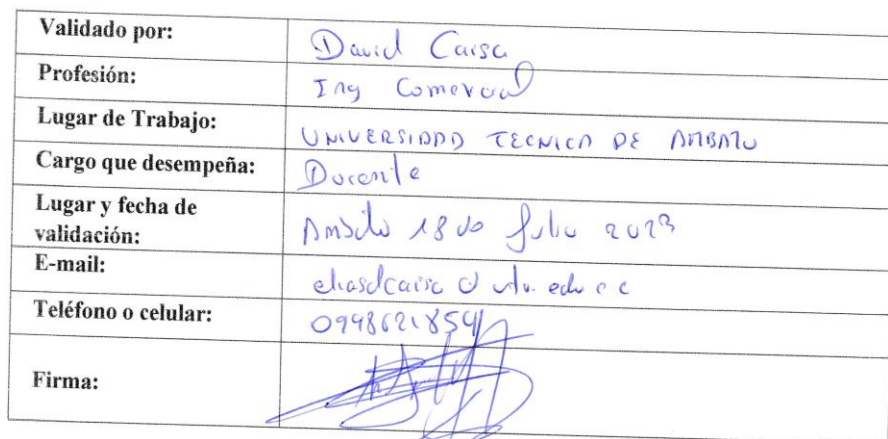 Validado por: David Caisa
Profesión: Ing Comercial
Lugar de Trabajo: UNIVERSIDAD TECNICA DE AMBATO
Cargo que desempeña: Docente
Lugar y fecha de
validación: Ambato 18 de Julio 2023
E-mail:
Teléfono o celular: 0998621854
Firma: